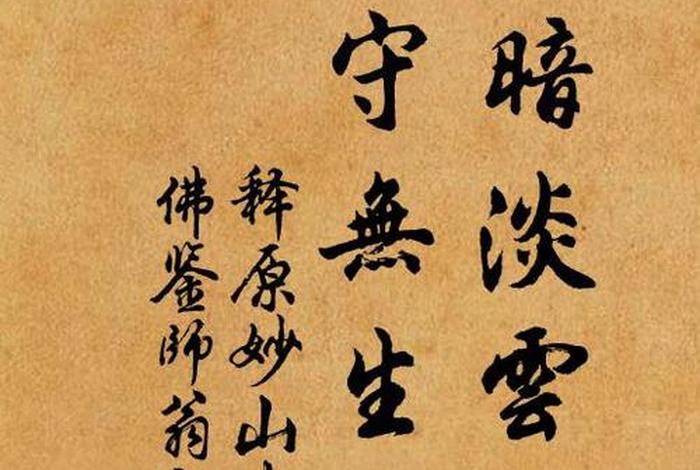 暗淡雲
守無生
释原妙山
佛鉴師翁